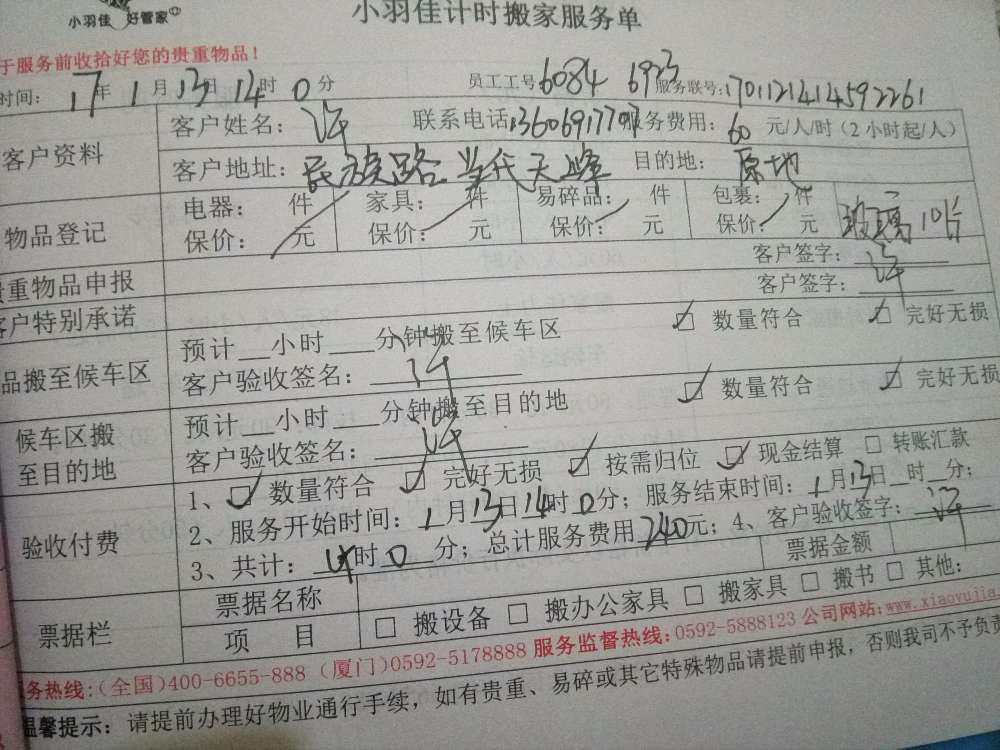 小羽佳 好管家
小羽佳计时搬家服务单
于服务前收拾好您的贵重物品！
时间： 17年 1月 13日 14时 0分 员工工号 6084 6933 服务联号：170112141459226 1
客户资料 客户姓名： 联系电话：13606917707 服务费用：60 元/人/时（2小时起/人）
客户地址：民族路 当代天峰 目的地：原地
物品登记 电器： 件 家具： 件 易碎品： 件 包裹： 件 玻璃 10台
保价： 元 保价： 元 保价： 元 保价： 元
贵重物品申报 客户签字：
客户特别承诺 客户签字：
品搬至候车区 预计 小时 分钟搬至候车区 ☑ 数量符合 ☑ 完好无损
客户验收签名：
候车区搬至目的地 预计 小时 分钟搬至目的地 ☑ 数量符合 ☑ 完好无损
客户验收签名：
验收付费 1、☑ 数量符合 ☑ 完好无损 ☑ 按需归位 ☑ 现金结算 □ 转账汇款
2、服务开始时间：1月13日14时0分；服务结束时间：1月13日 时 分；
3、共计：4时0分；总计服务费用240元；4、客户验收签字：
票据栏 票据名称 票据金额
项 目 □ 搬设备 □ 搬办公家具 □ 搬家具 □ 搬书 □ 其他：
服务热线：(全国)400-6655-888 (厦门)0592-5178888 服务监督热线：0592-5888123 公司网站：www.xiaoyujia
温馨提示：请提前办理好物业通行手续，如有贵重、易碎或其它特殊物品请提前申报，否则我司不予负责